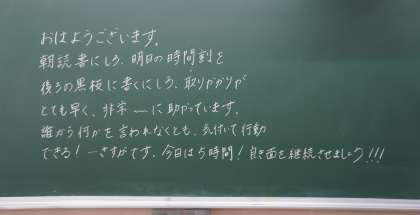 おはようございます。
朝読書にしろ、明日の時間割を
後ろの黒板に書くにしろ、取りかかりが
とても早く、非常ーに助かっています。
誰から何かを言われなくとも、気付いて行動
できる！ーさすがです。今日は5時間！良き面を継続させましょう!!!